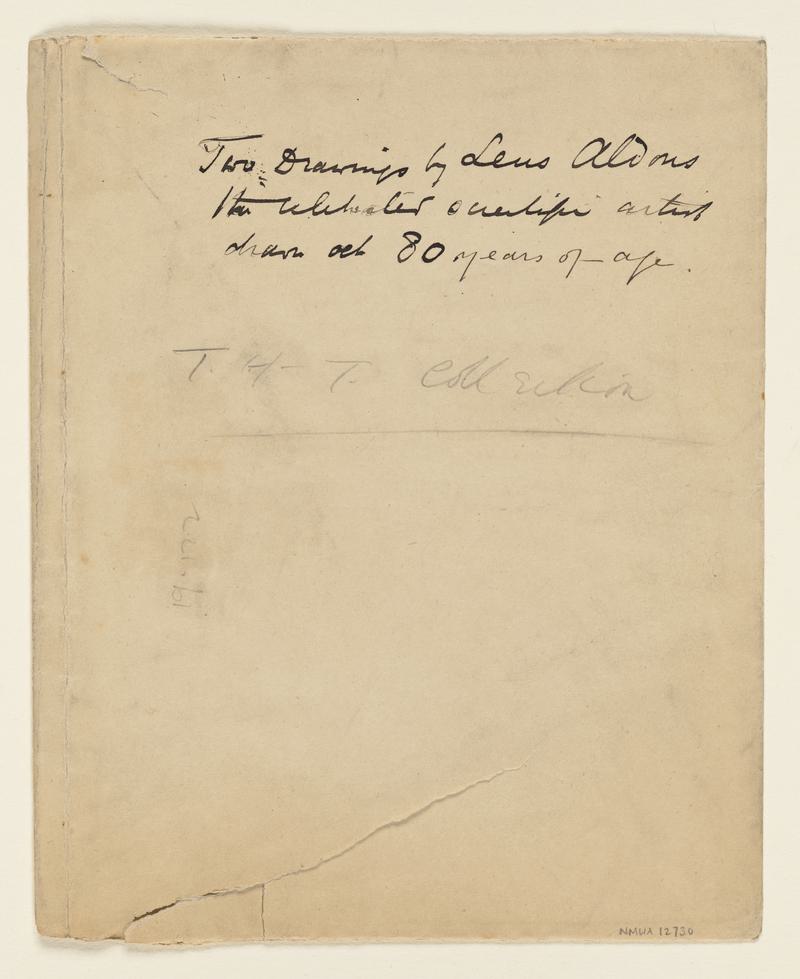 Two Drawings by Lens Aldous
The celebrated scientific artist
drawn at 80 years of age.
T. H. T. Collection
NMWA 12730